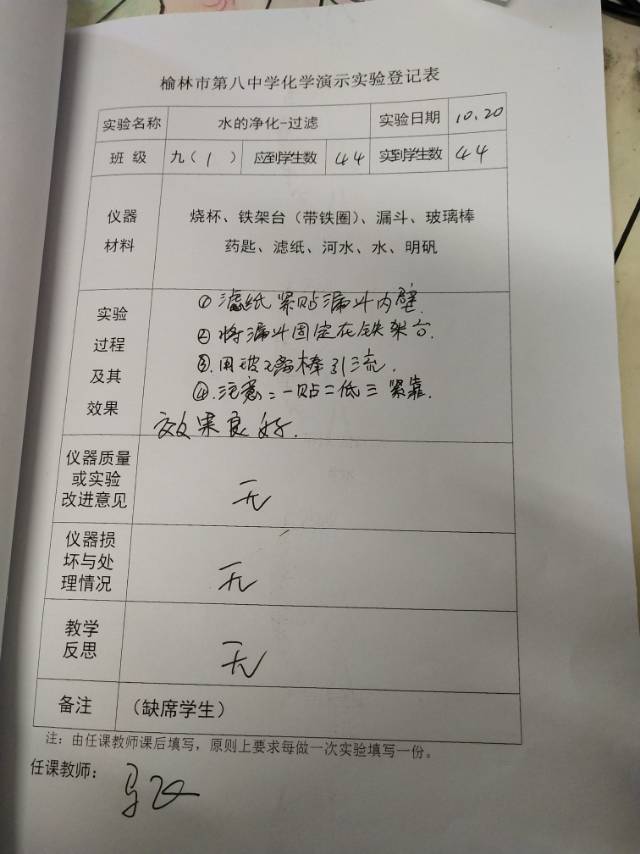 榆林市第八中学化学演示实验登记表
实验名称 水的净化-过滤 实验日期 10.20
班 级 九（ 1 ） 应到学生数 44 实到学生数 44
仪器
材料
烧杯、铁架台（带铁圈）、漏斗、玻璃棒
药匙、滤纸、河水、水、明矾
实验
过程
及其
效果
①滤纸紧贴漏斗内壁.
②将漏斗固定在铁架台.
③.用玻璃棒引流.
④.注意:一贴二低三紧靠.
效果良好.
仪器质量
或实验
改进意见
无
仪器损
坏与处
理情况
无
教学
反思
无
备注 （缺席学生）
注：由任课教师课后填写，原则上要求每做一次实验填写一份。
任课教师：